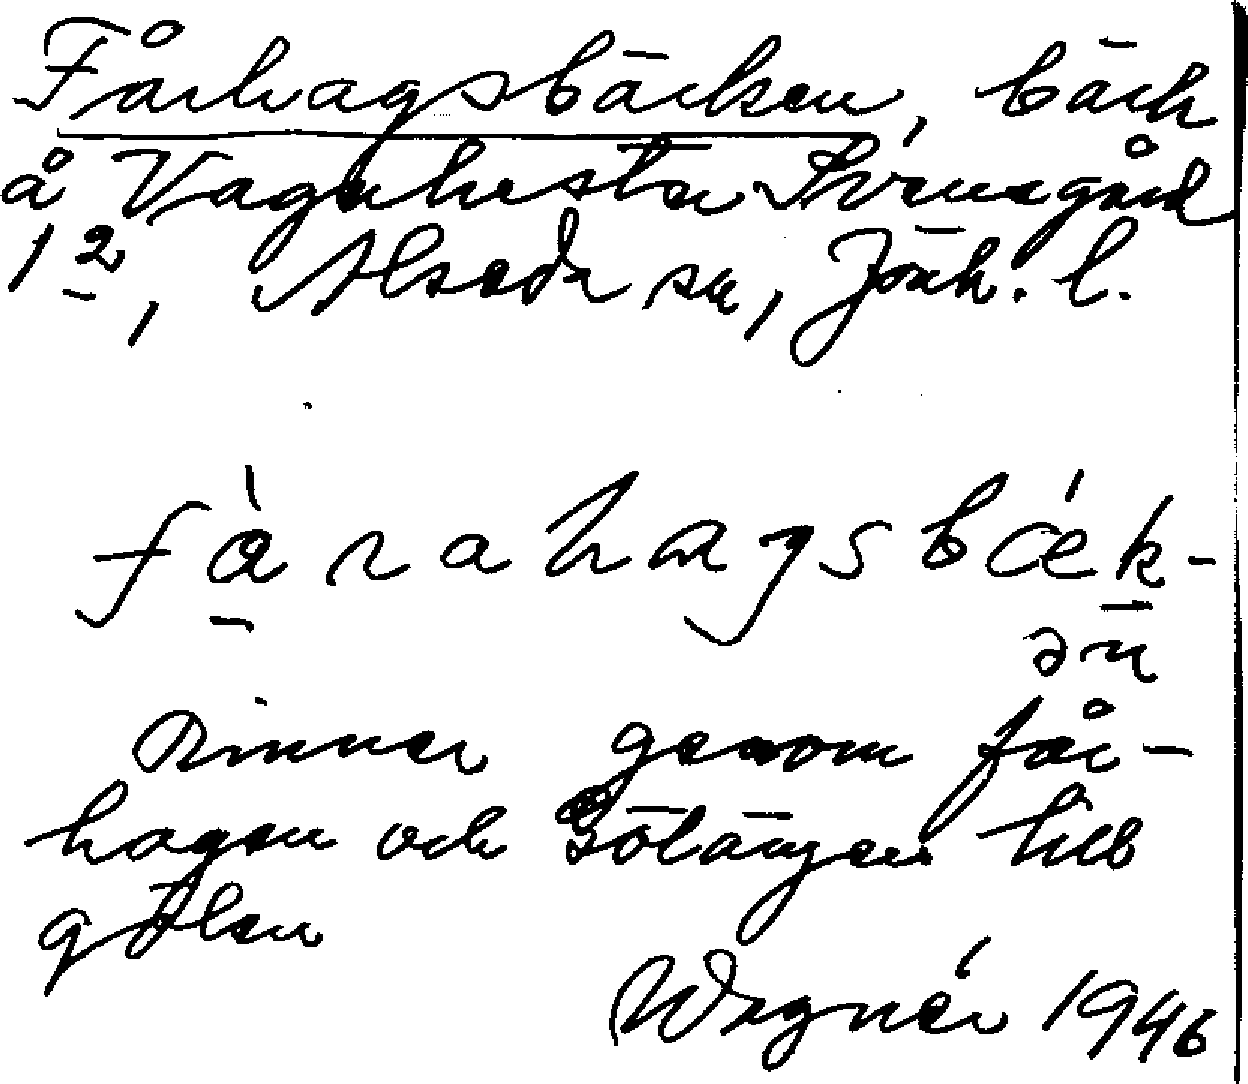 Fårhagsbäcken, bäck
å Vagnhester Svensgård
1 2, Alseda sn, Jönk. l.
fàrahagsbǽk-
ən
Rinner genom får-
hagen och Gölängen till
gölen
Wagnér 1946